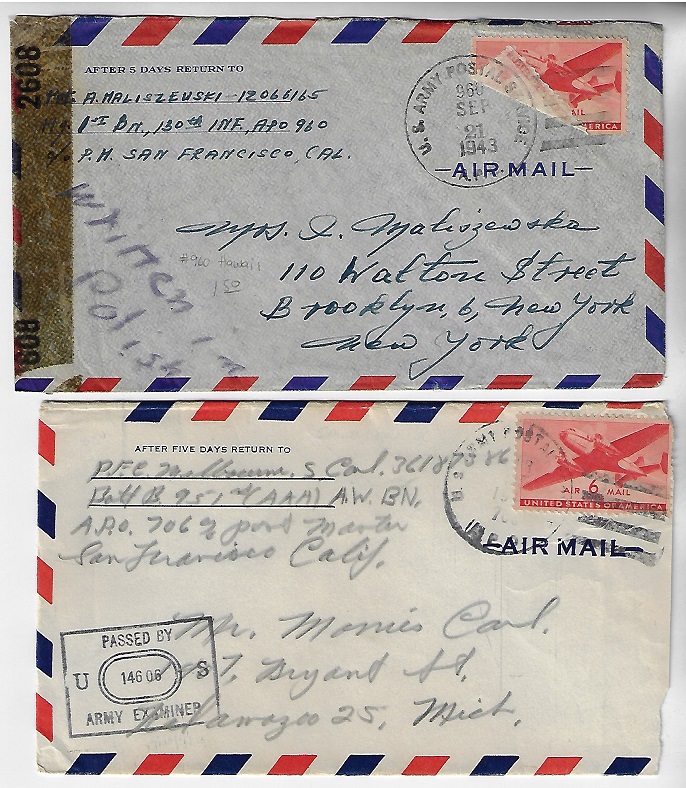 2608
AFTER 5 DAYS RETURN TO
A. MALISZEWSKI - 12066165
1ST BN, 130th INF, APO 960
% P.M. SAN FRANCISCO, CAL.
U.S. ARMY POSTAL
960
SEP
21
1943
A.P.O.
AIL
AMERICA
AIR MAIL
written in
Polish
#960 Hawaii
1 50
Mrs. I. Maliszewska
110 Walton Street
Brooklyn, 6, New York
New York
608
AFTER FIVE DAYS RETURN TO
P.F.C. S. Carl.
Batt B. 951st (AAA) A.W. BN.
A.P.O. 706 % post Master
San Francisco Calif.
U.S. ARMY POSTAL
AIR 6 MAIL
UNITED STATES OF AMERICA
AIR MAIL
Mr. Morris Carl.
Bryant St.
Kalamazoo 25, Mich.
PASSED BY
U 14606 S
ARMY EXAMINER